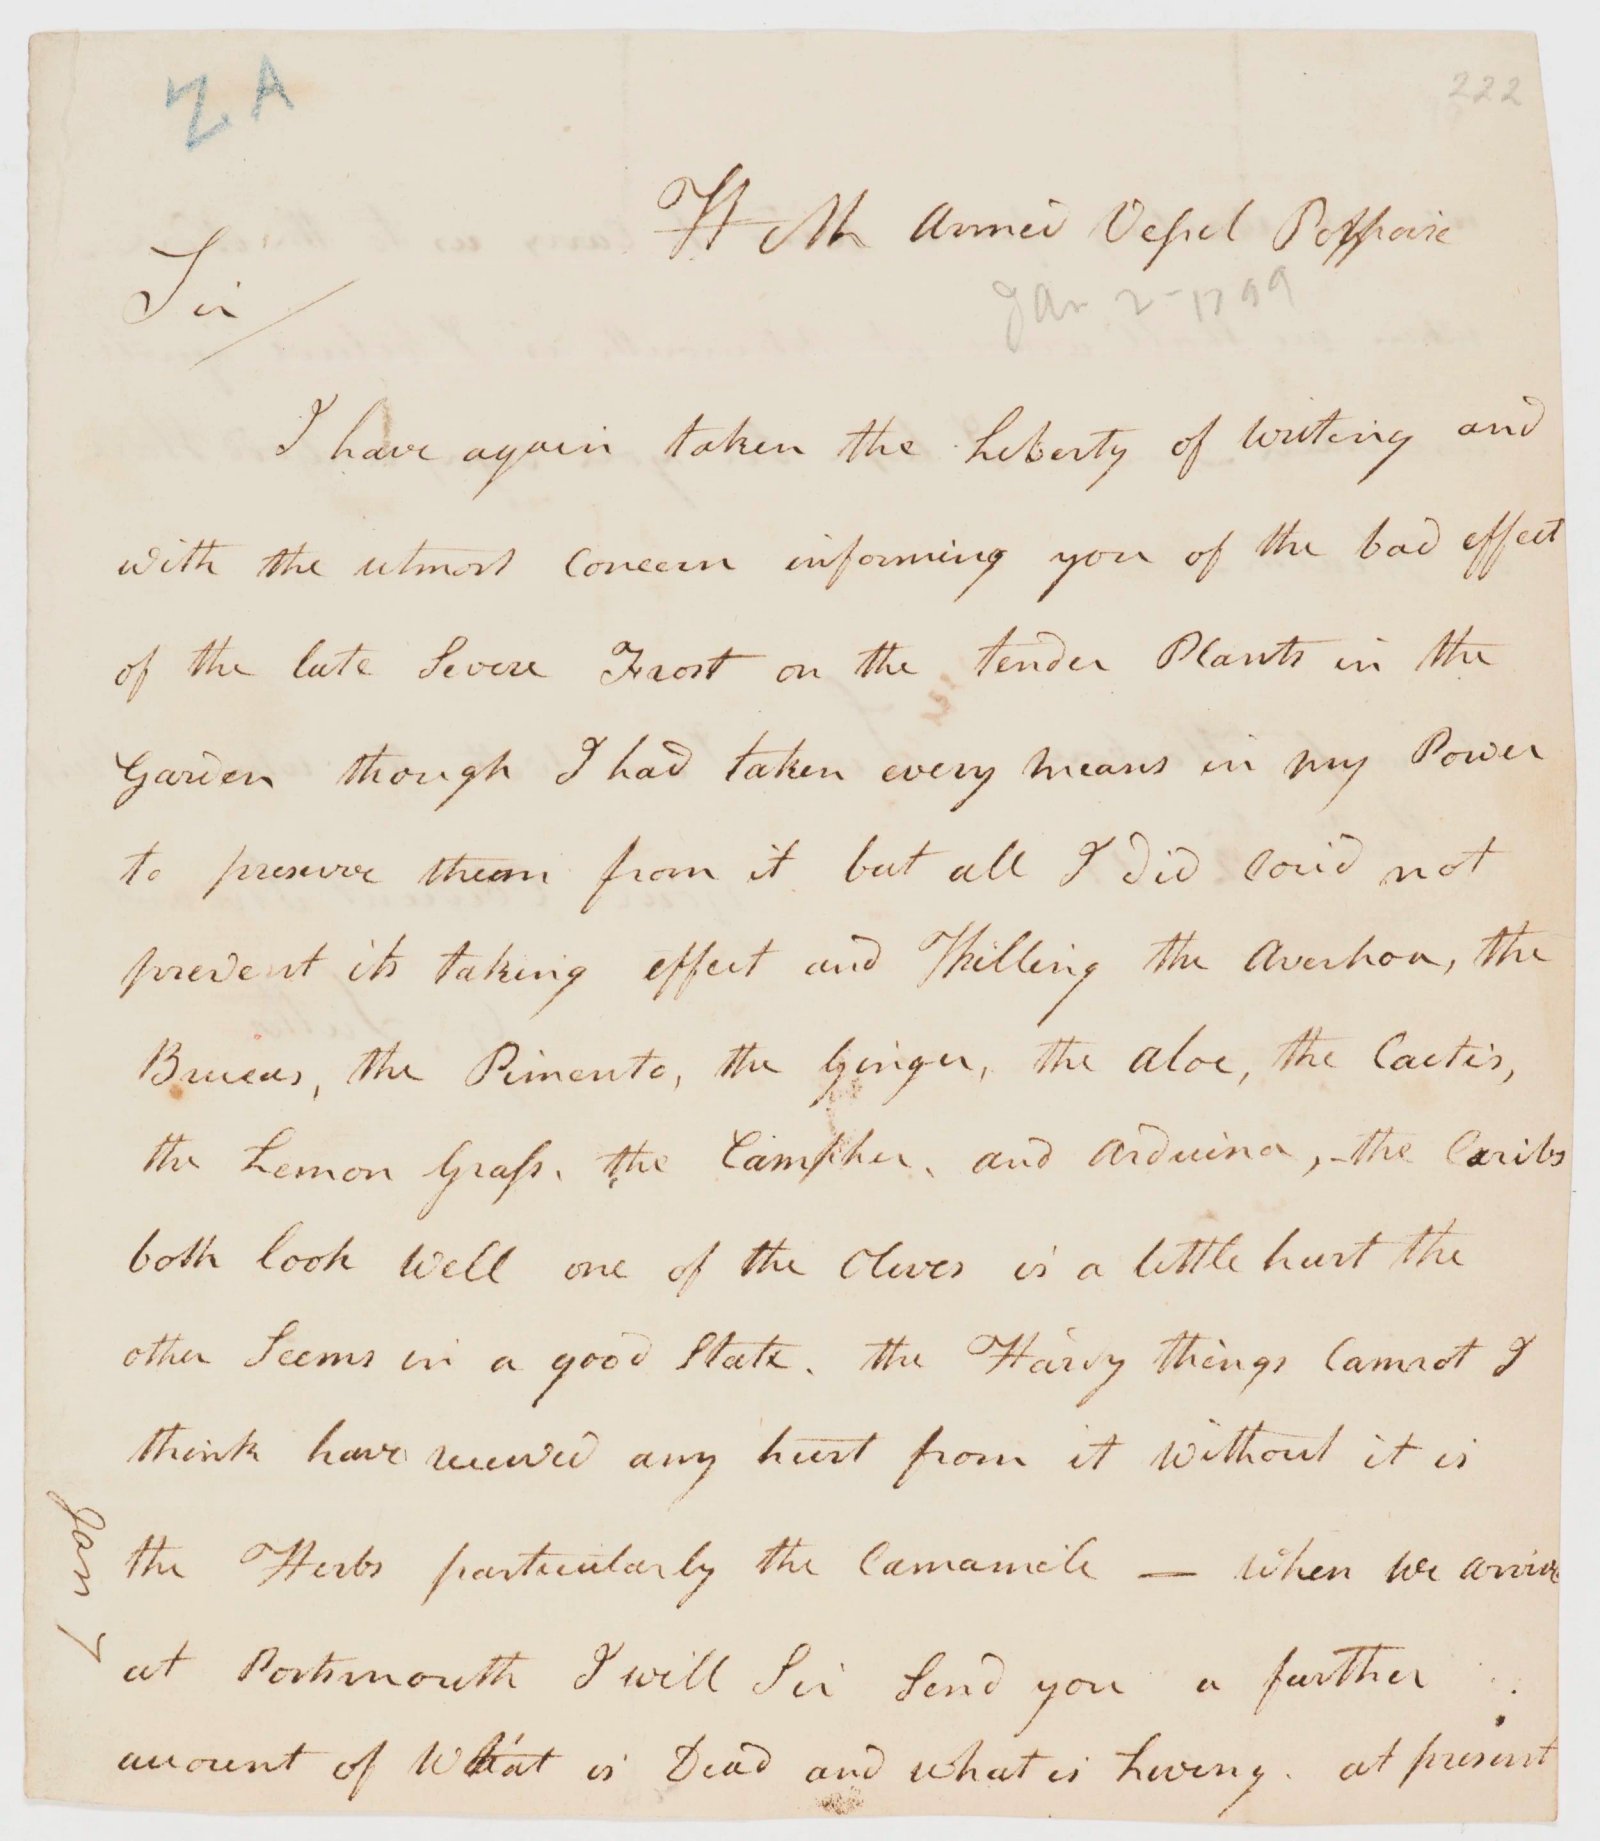 ZA
222
H M Armed Vessel Porpoise
Jan 2 - 1799
Sir/
I have again taken the Liberty of writing and
with the utmost Concern informing you of the bad effect
of the late Severe Frost on the tender Plants in the
Garden though I had taken every means in my Power
to preserve them from it but all I did Cou'd not
prevent its taking effect and Killing the Averhoa, the
Bruceas, the Pimento, the Ginger, the Aloe, the Cactis,
the Lemon Grass, the Campher, and Arduina, - the Caribs
both look Well one of the Olives is a little hurt the
other Seems in a good State. the Hardy things Cannot I
think have received any hurt from it without it is
the Herbs particularly the Camamile — When we arrive
at Portsmouth I will Sir Send you a further
account of What is Dead and what is Living. at present
Jan 7